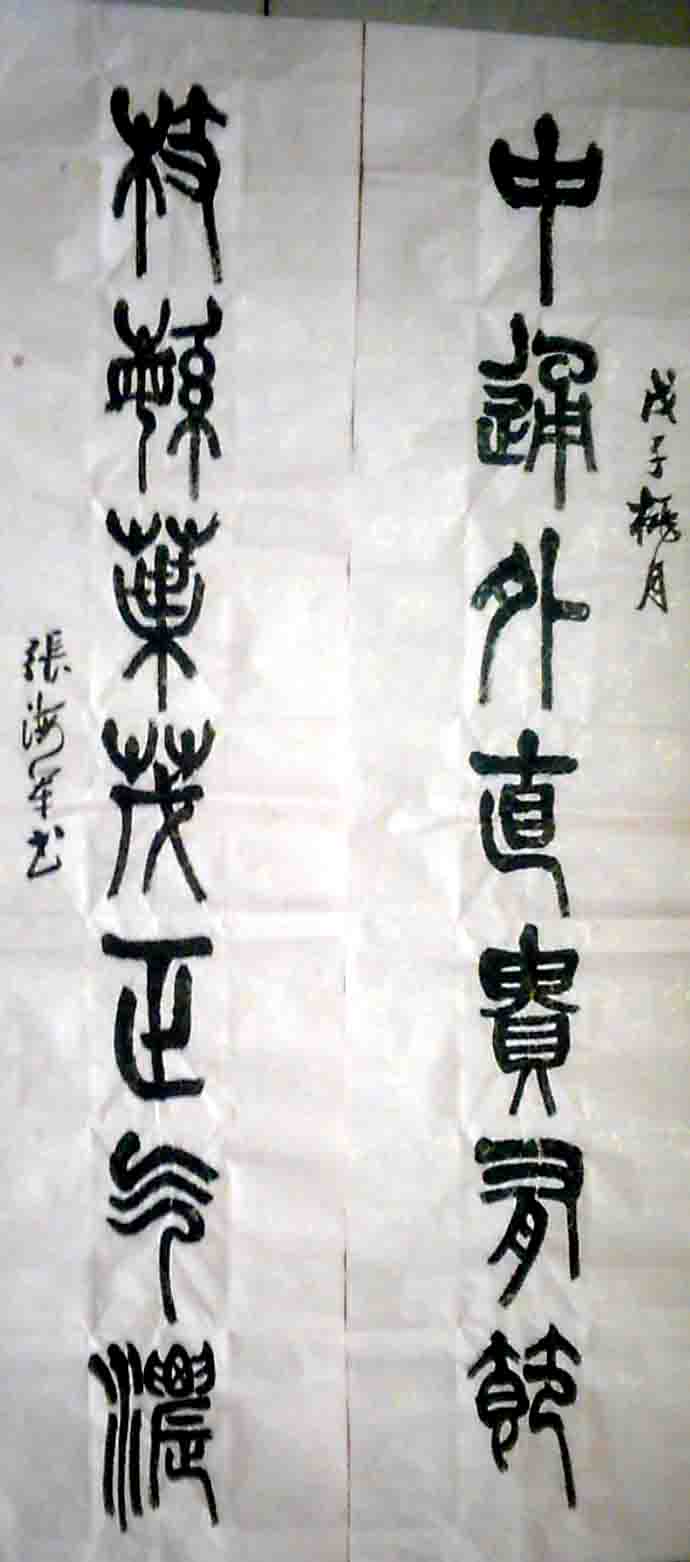 戊子桃月
中通外直貴有節
枝繁葉茂正气濃
張海军书